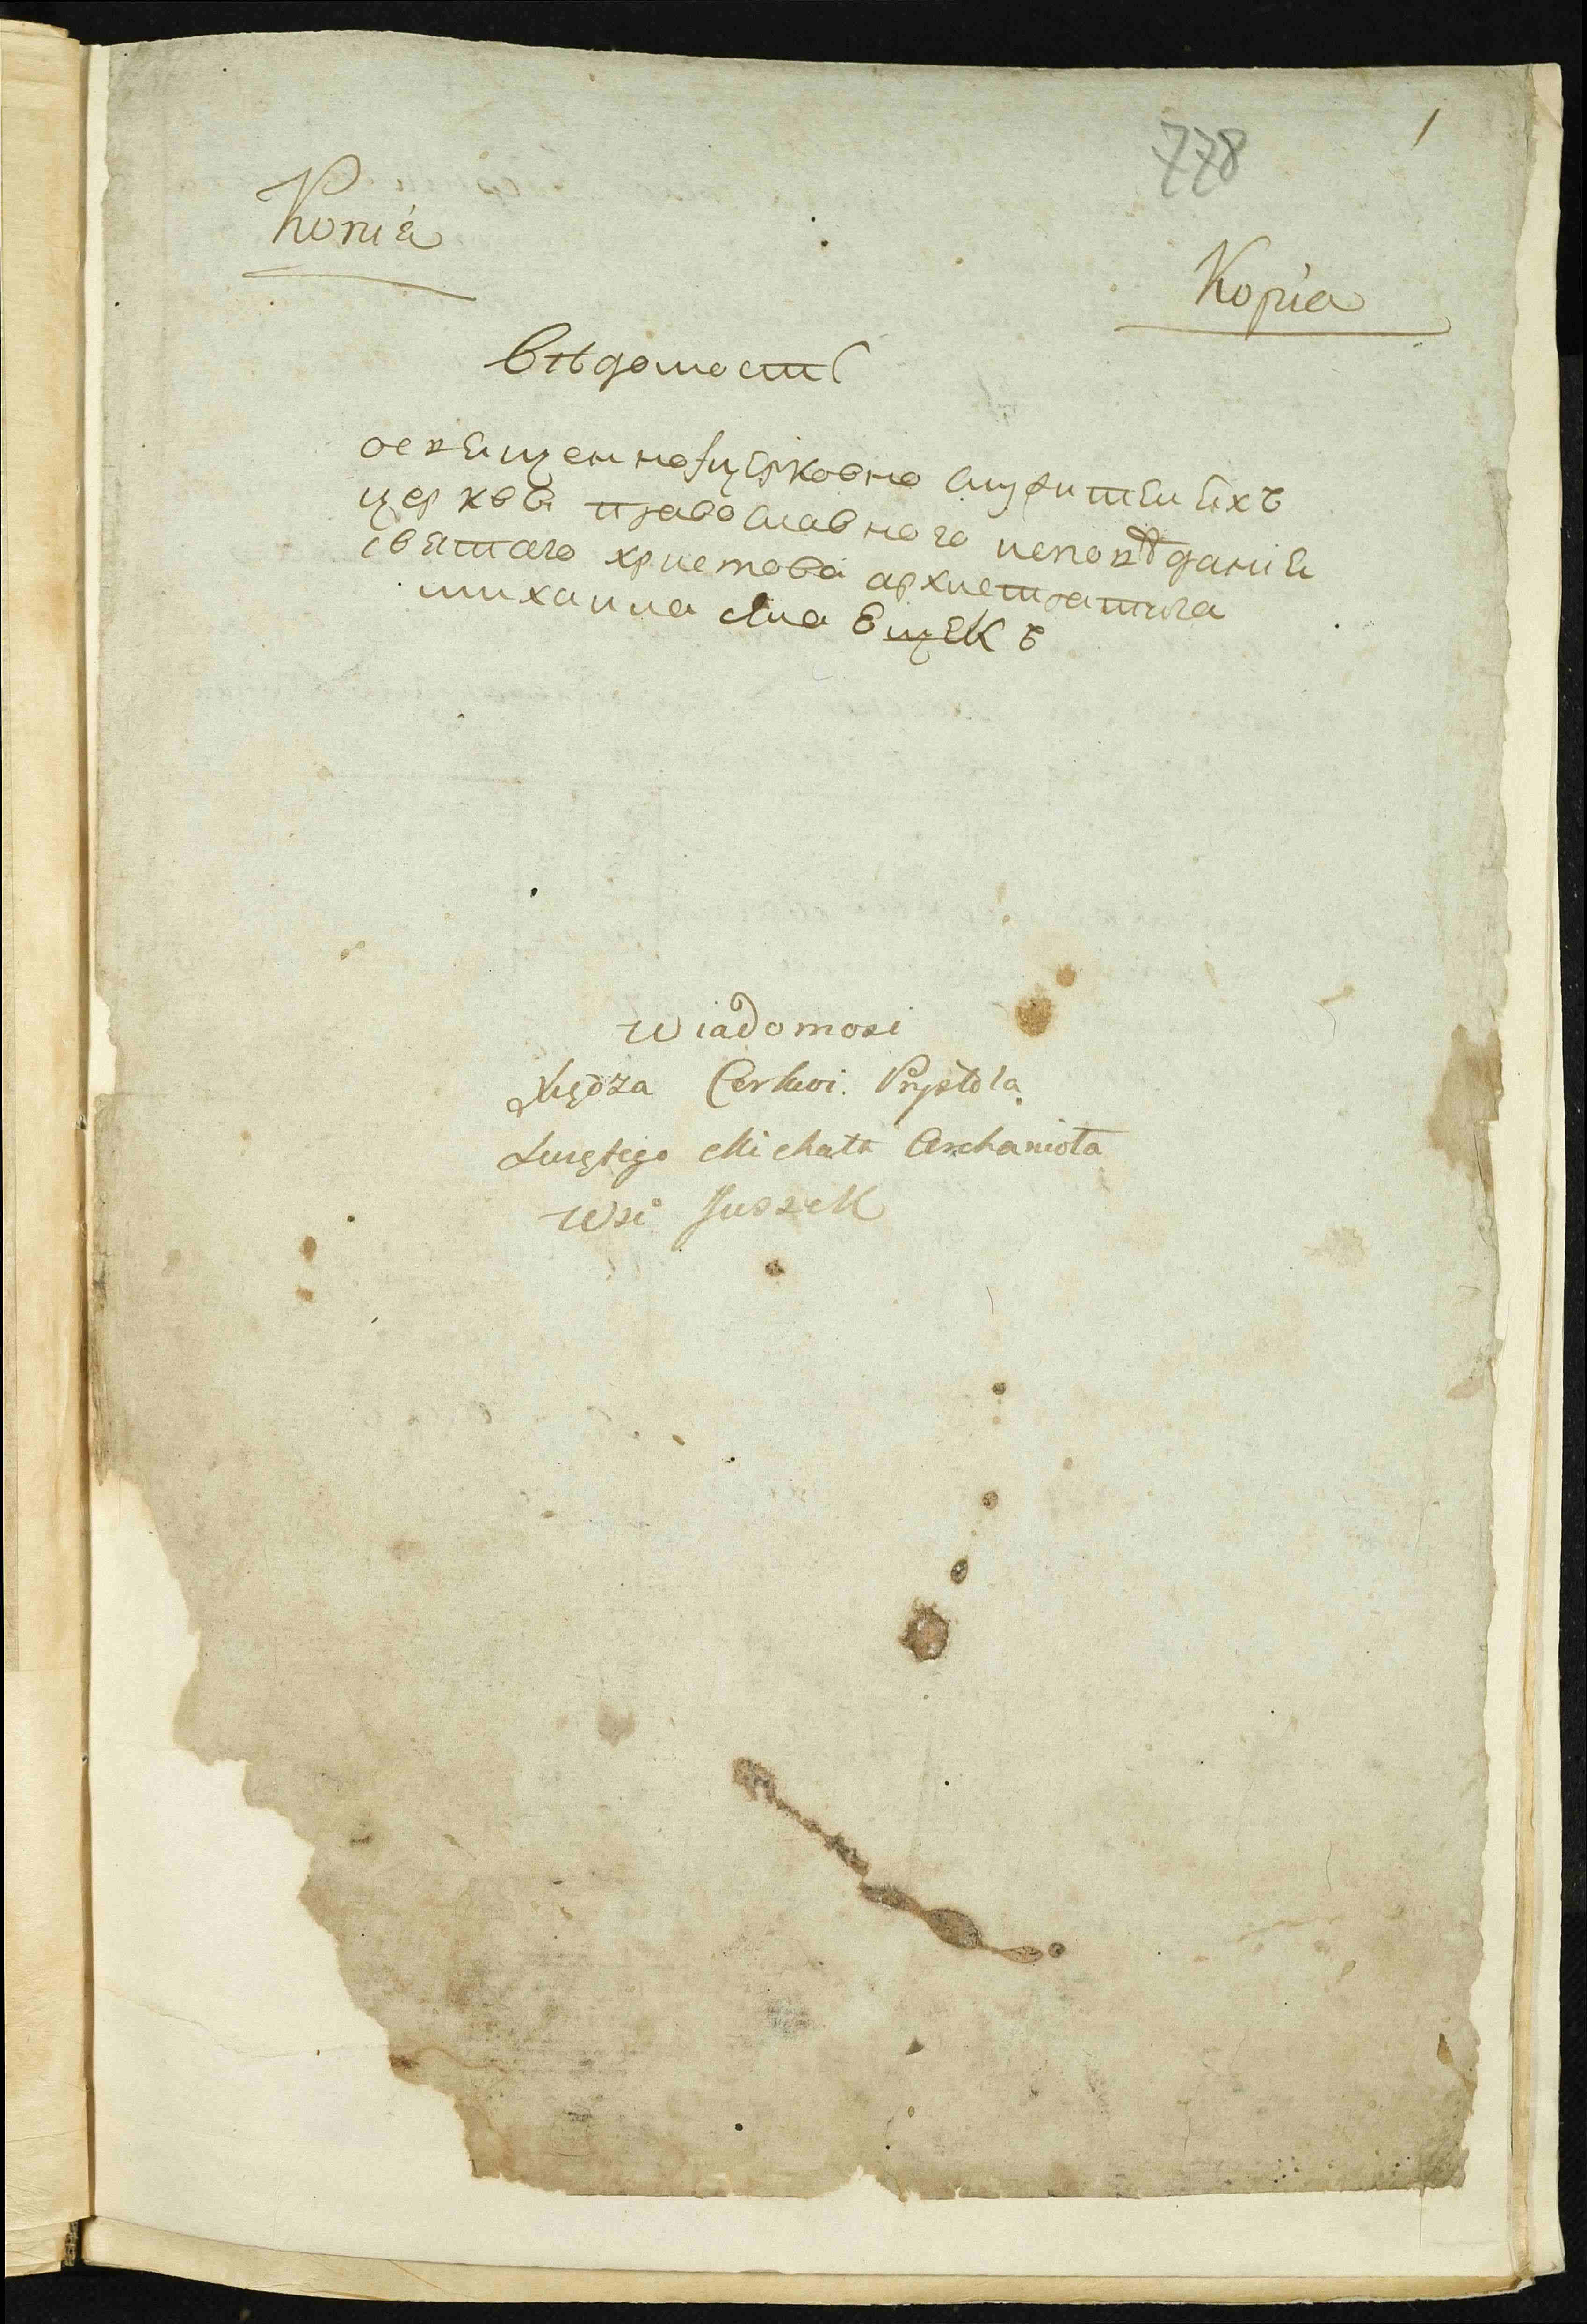 778
1
Копиѧ
Kopia
Вѣдомость
освѧщенно/церковно служителѧхъ
церквѣ православнаго исповѣданиѧ
свѧтаго христова архистратига
михаила
Wiadomosi
Xiędza Cerkwi Prystola
Swiętego Michała Archanioła
Wsi Juszek